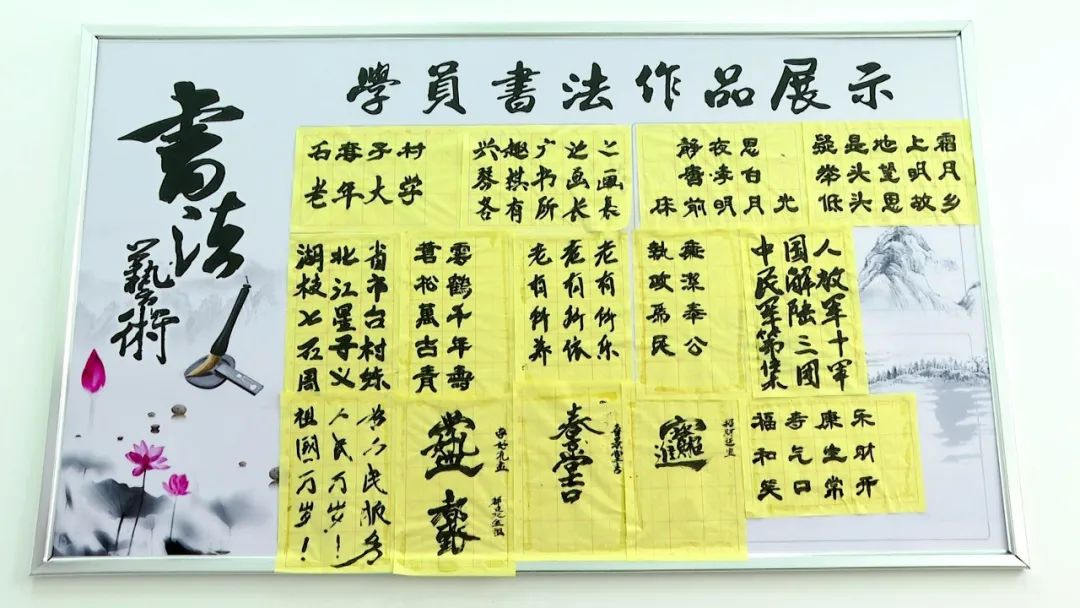 學員書法作品展示
書法
藝術
石套子村
老年大学
兴趣广
琴棋书画
各有所长
静夜思
唐李白
床前明月光
疑是地上霜
举头望明月
低头思故乡
湖北省
枝江市
七星台
石子村
周义练
雲鶴千年壽
蒼松萬古青
老有所养
老有所依
老有所乐
廉潔奉公
執政為民
中国人
民解放
军陆军
第三十
集团军
祖國万岁！
人民万岁！
为人民服务
招财进宝
福寿康乐
和气生财
笑口常开